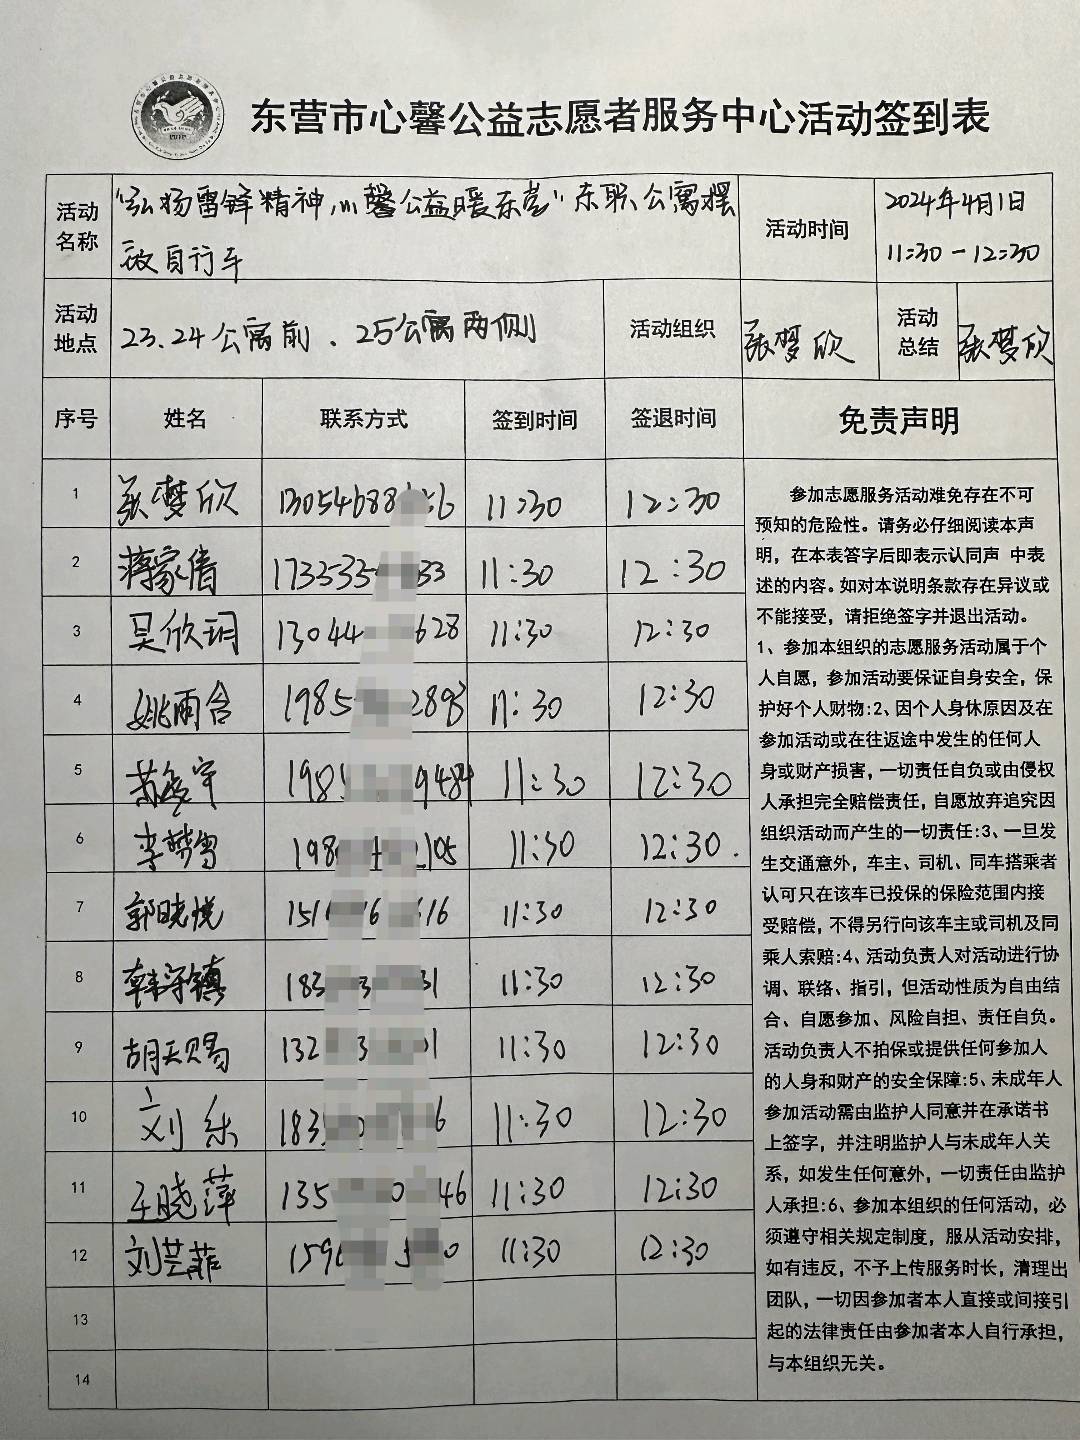 东营市心馨公益志愿者服务中心活动签到表
活动名称
"弘扬雷锋精神，心馨公益暖东营"东职公寓摆
放自行车
活动时间
2024年4月1日
11:30-12:30
活动地点
23.24公寓前、25公寓两侧
活动组织
张梦欣
活动总结
张梦欣
序号 姓名 联系方式 签到时间 签退时间 免责声明
1 张梦欣 13054688 6 11:30 12:30
2 蒋家倩 1733335 33 11:30 12:30
3 吴欣玥 13044 628 11:30 12:30
4 姚雨含 1985 2893 11:30 12:30
5 198 9484 11:30 12:30
6 李梦雪 198 105 11:30 12:30.
7 郭晓悦 151 6 16 11:30 12:30
8 韩守镇 183 3 31 11:30 12:30
9 胡天赐 132 3 01 11:30 12:30
10 刘乐 183 6 11:30 12:30
11 王晓萍 135 0 46 11:30 12:30
12 刘芸菲 159 0 11:30 12:30
13
14
参加志愿服务活动难免存在不可
预知的危险性。请务必仔细阅读本声
明，在本表答字后即表示认同声 中表
述的内容。如对本说明条款存在异议或
不能接受，请拒绝签字并退出活动。
1、参加本组织的志愿服务活动属于个
人自愿，参加活动要保证自身安全，保
护好个人财物:2、因个人身休原因及在
参加活动或在往返途中发生的任何人
身或财产损害，一切责任自负或由侵权
人承担完全赔偿责任，自愿放弃追究因
组织活动而产生的一切责任:3、一旦发
生交通意外，车主、司机、同车搭乘者
认可只在该车已投保的保险范围内接
受赔偿，不得另行向该车主或司机及同
乘人索赔:4、活动负责人对活动进行协
调、联络、指引，但活动性质为自由结
合、自愿参加、风险自担、责任自负。
活动负责人不拍保或提供任何参加人
的人身和财产的安全保障:5、未成年人
参加活动需由监护人同意并在承诺书
上签字，并注明监护人与未成年人关
系，如发生任何意外，一切责任由监护
人承担:6、参加本组织的任何活动，必
须遵守相关规定制度，服从活动安排，
如有违反，不予上传服务时长，清理出
团队，一切因参加者本人直接或间接引
起的法律责任由参加者本人自行承担，
与本组织无关。